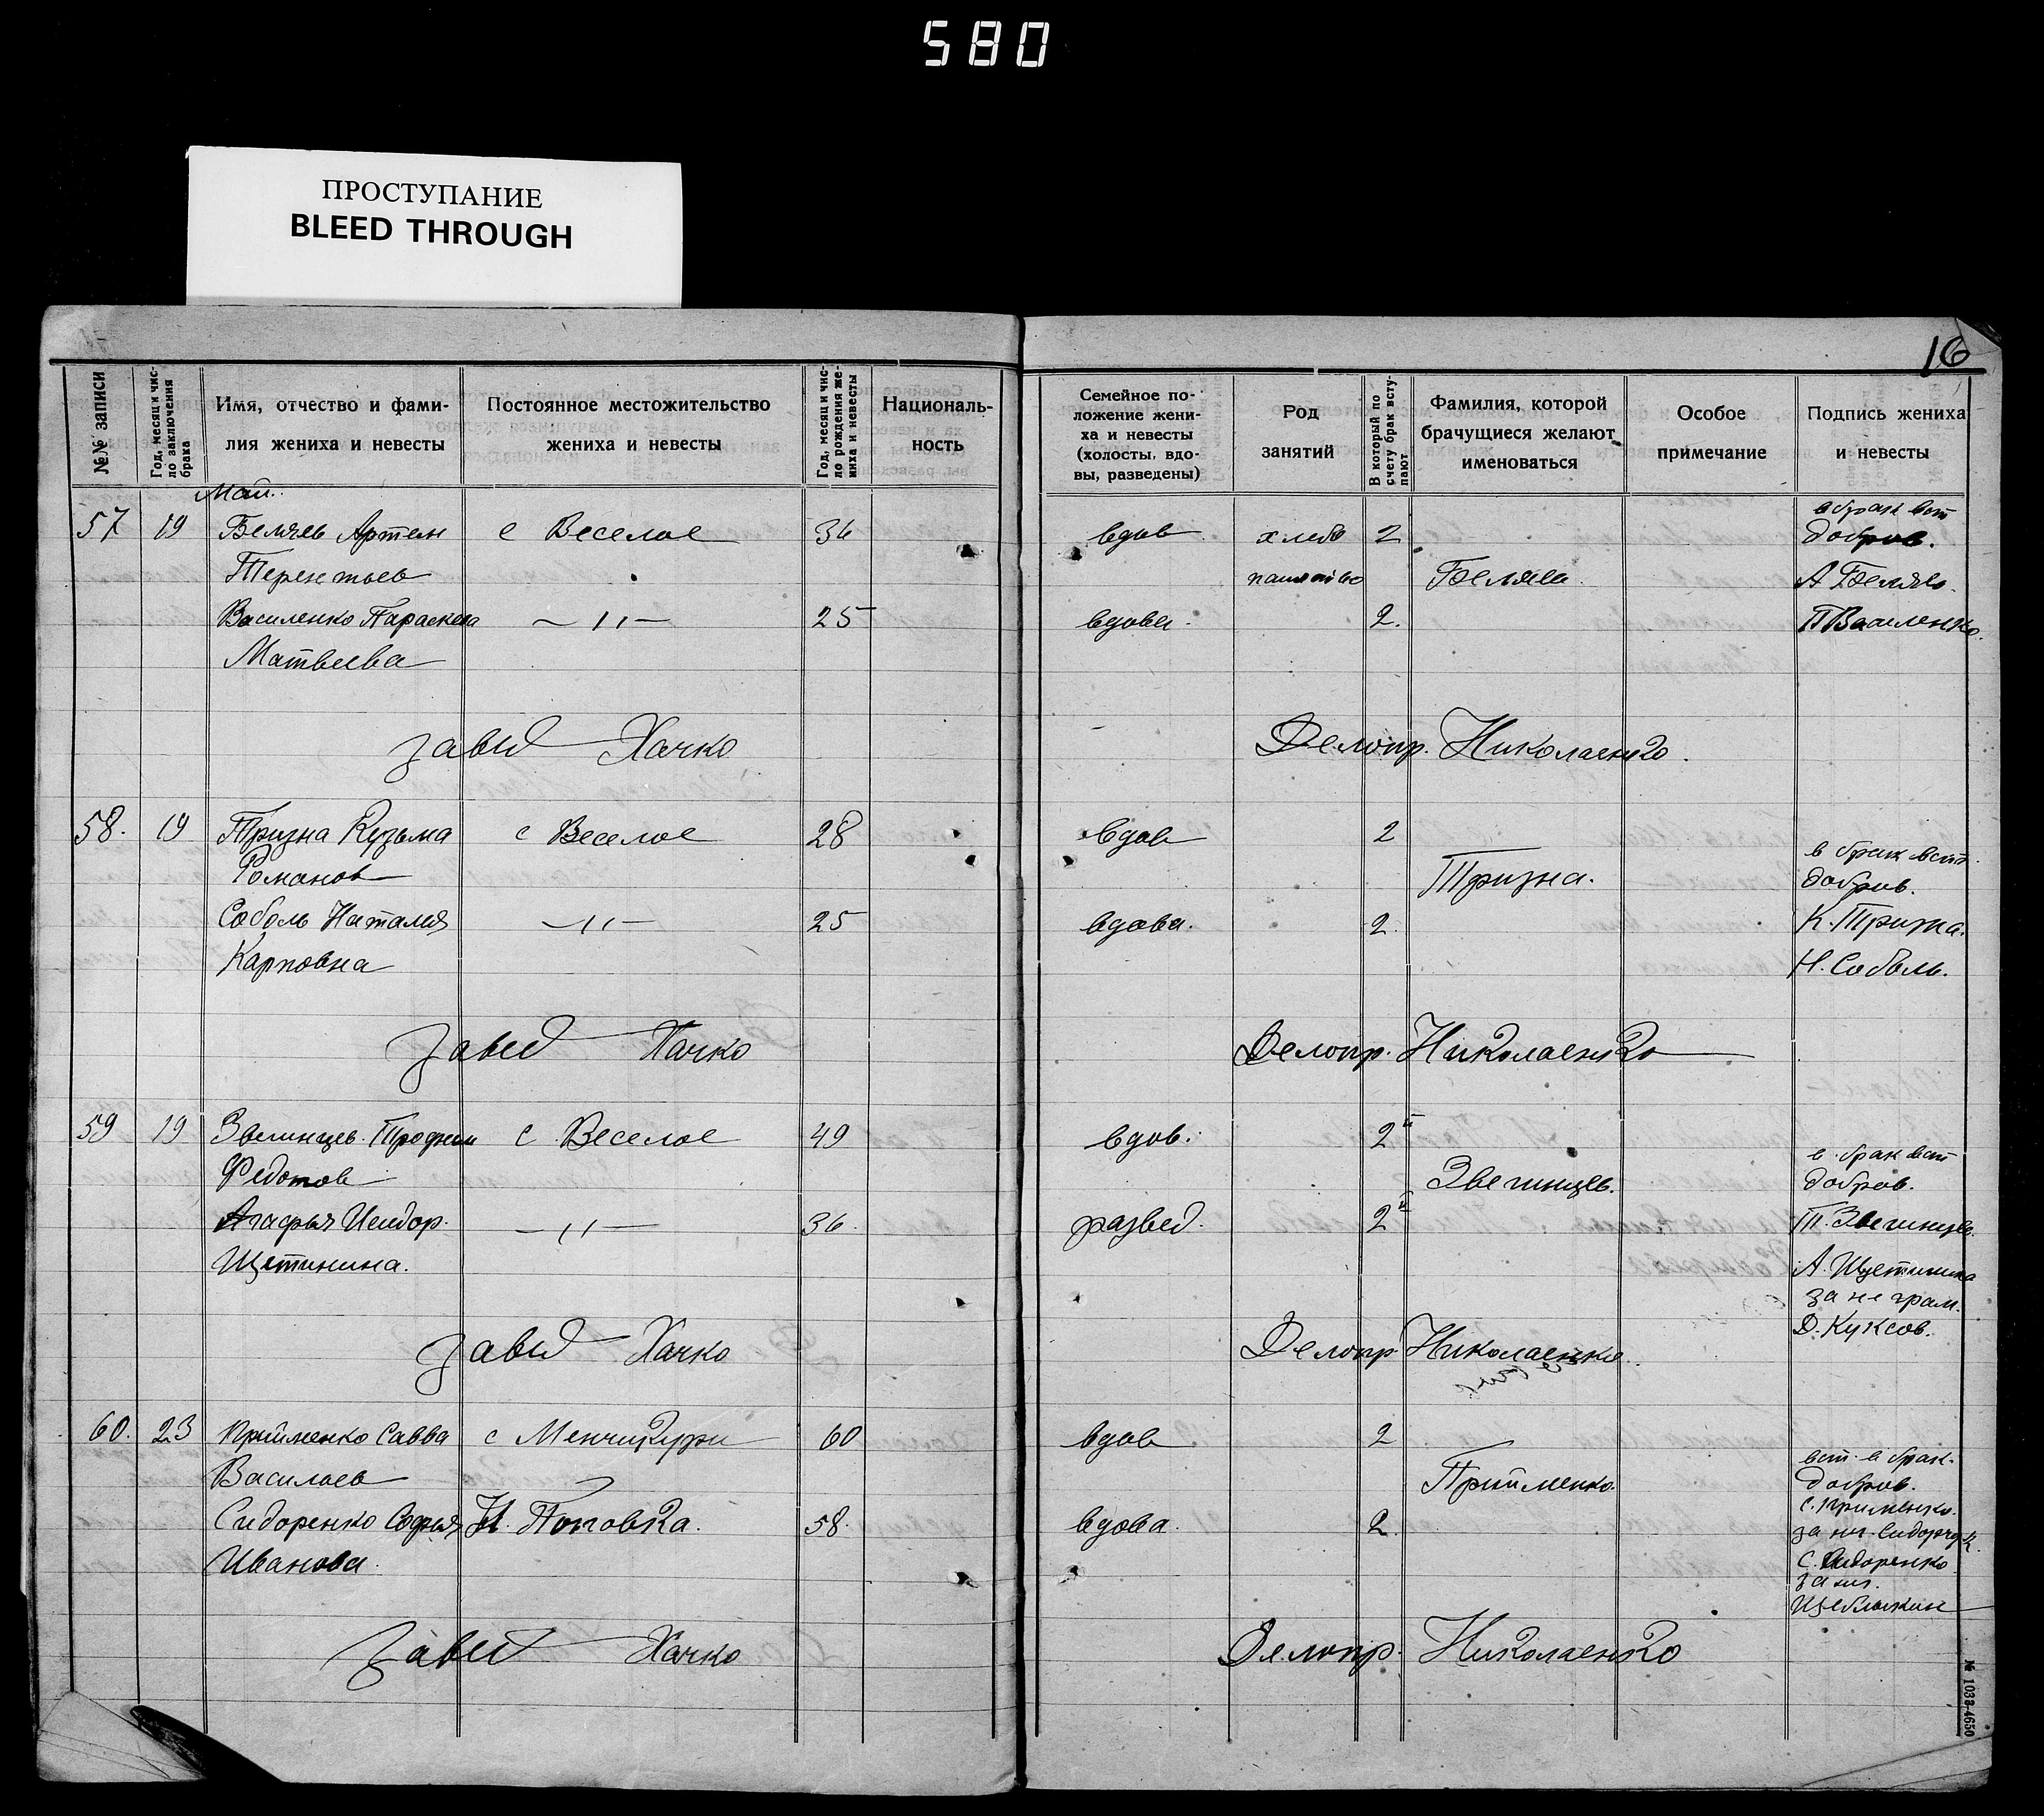 580
ПРОСТУПАНИЕ
BLEED THROUGH
16
№№ записи
Год, месяц и чис-
ло заключения
брака
Имя, отчество и фами-
лия жениха и невесты
Постоянное местожительство
жениха и невесты
Год, месяц и чис-
ло рождения же-
ниха и невесты
Националь-
ность
Семейное по-
ложение жени-
ха и невесты
(холосты, вдо-
вы, разведены)
Род
занятий
В который по
счету брак всту-
пают
Фамилия, которой
брачущиеся желают
именоваться
Особое
примечание
Подпись жениха
и невесты
Май
в брак вст
57 19 Беляев Артем с Веселое 36 вдов хлебо 2 добров.
Терентьев пашество Беляев А Беляев.
Василенко Параскева — 〃 — 25 вдова. 2. П Василенко.
Матвеева
завед Хачко Делопр. Николаенко.
58. 19 Тризна Кузьма с Веселое 28 вдов 2
в брак вст.
Романов Тризна. добров.
Соболь Наталия — 〃 — 25 вдова. 2. К. Тризна.
Карповна Н. Соболь.
Завед Хачко Делопр. Николаенко
59 19 Звегинцев Трофим с. Веселое 49 вдов. 2й
в. брак вст
Федотов Звегинцев. добров.
Агафья Исидор. — 〃 — 36. развед. 2й Т. Звегинцев.
Щетинина. А. Щетинина
за не грам.
Д. Куксов.
Завед Хачко Делопр Николаенко.
60. 23 Прийменко Савва с Менчикури 60 вдов 2
вст. в брак.
Васильев Прийменко. добров.
С. Применко.
Сидоренко Софья Н. Поповка. 58. вдова. 2. за нег.
С. Сидоренко
Иванова. за нег.
Щеблыкин
Завед Хачко Делопр. Николаенко
№ 1033-4650